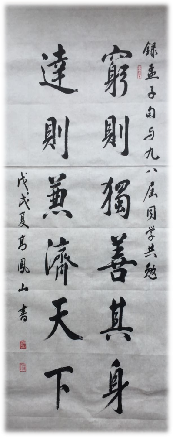 錄孟子句与九八届同学共勉
窮則獨善其身
達則兼濟天下
戊戌夏高鳳山書